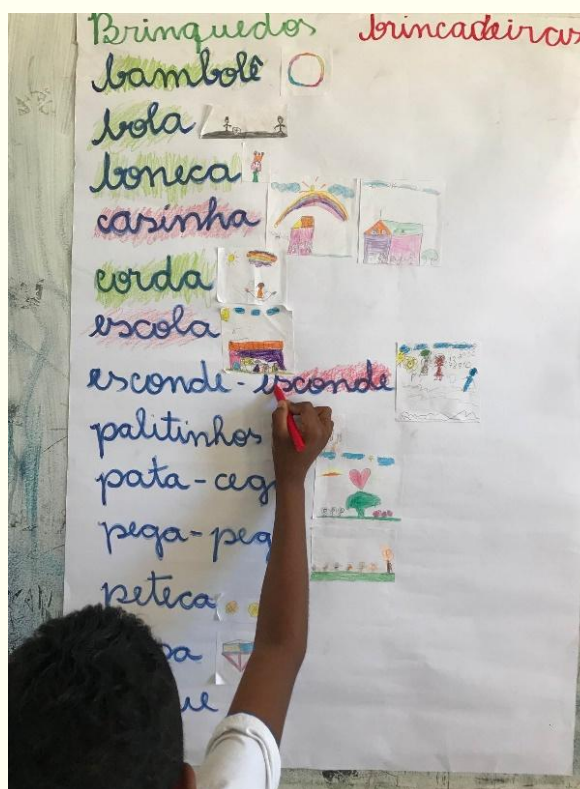 Brinquedos brincadeiras
bambolê
bola
boneca
casinha
corda
escola
esconde-esconde
palitinhos
pata-ceg
pega-peg
peteca